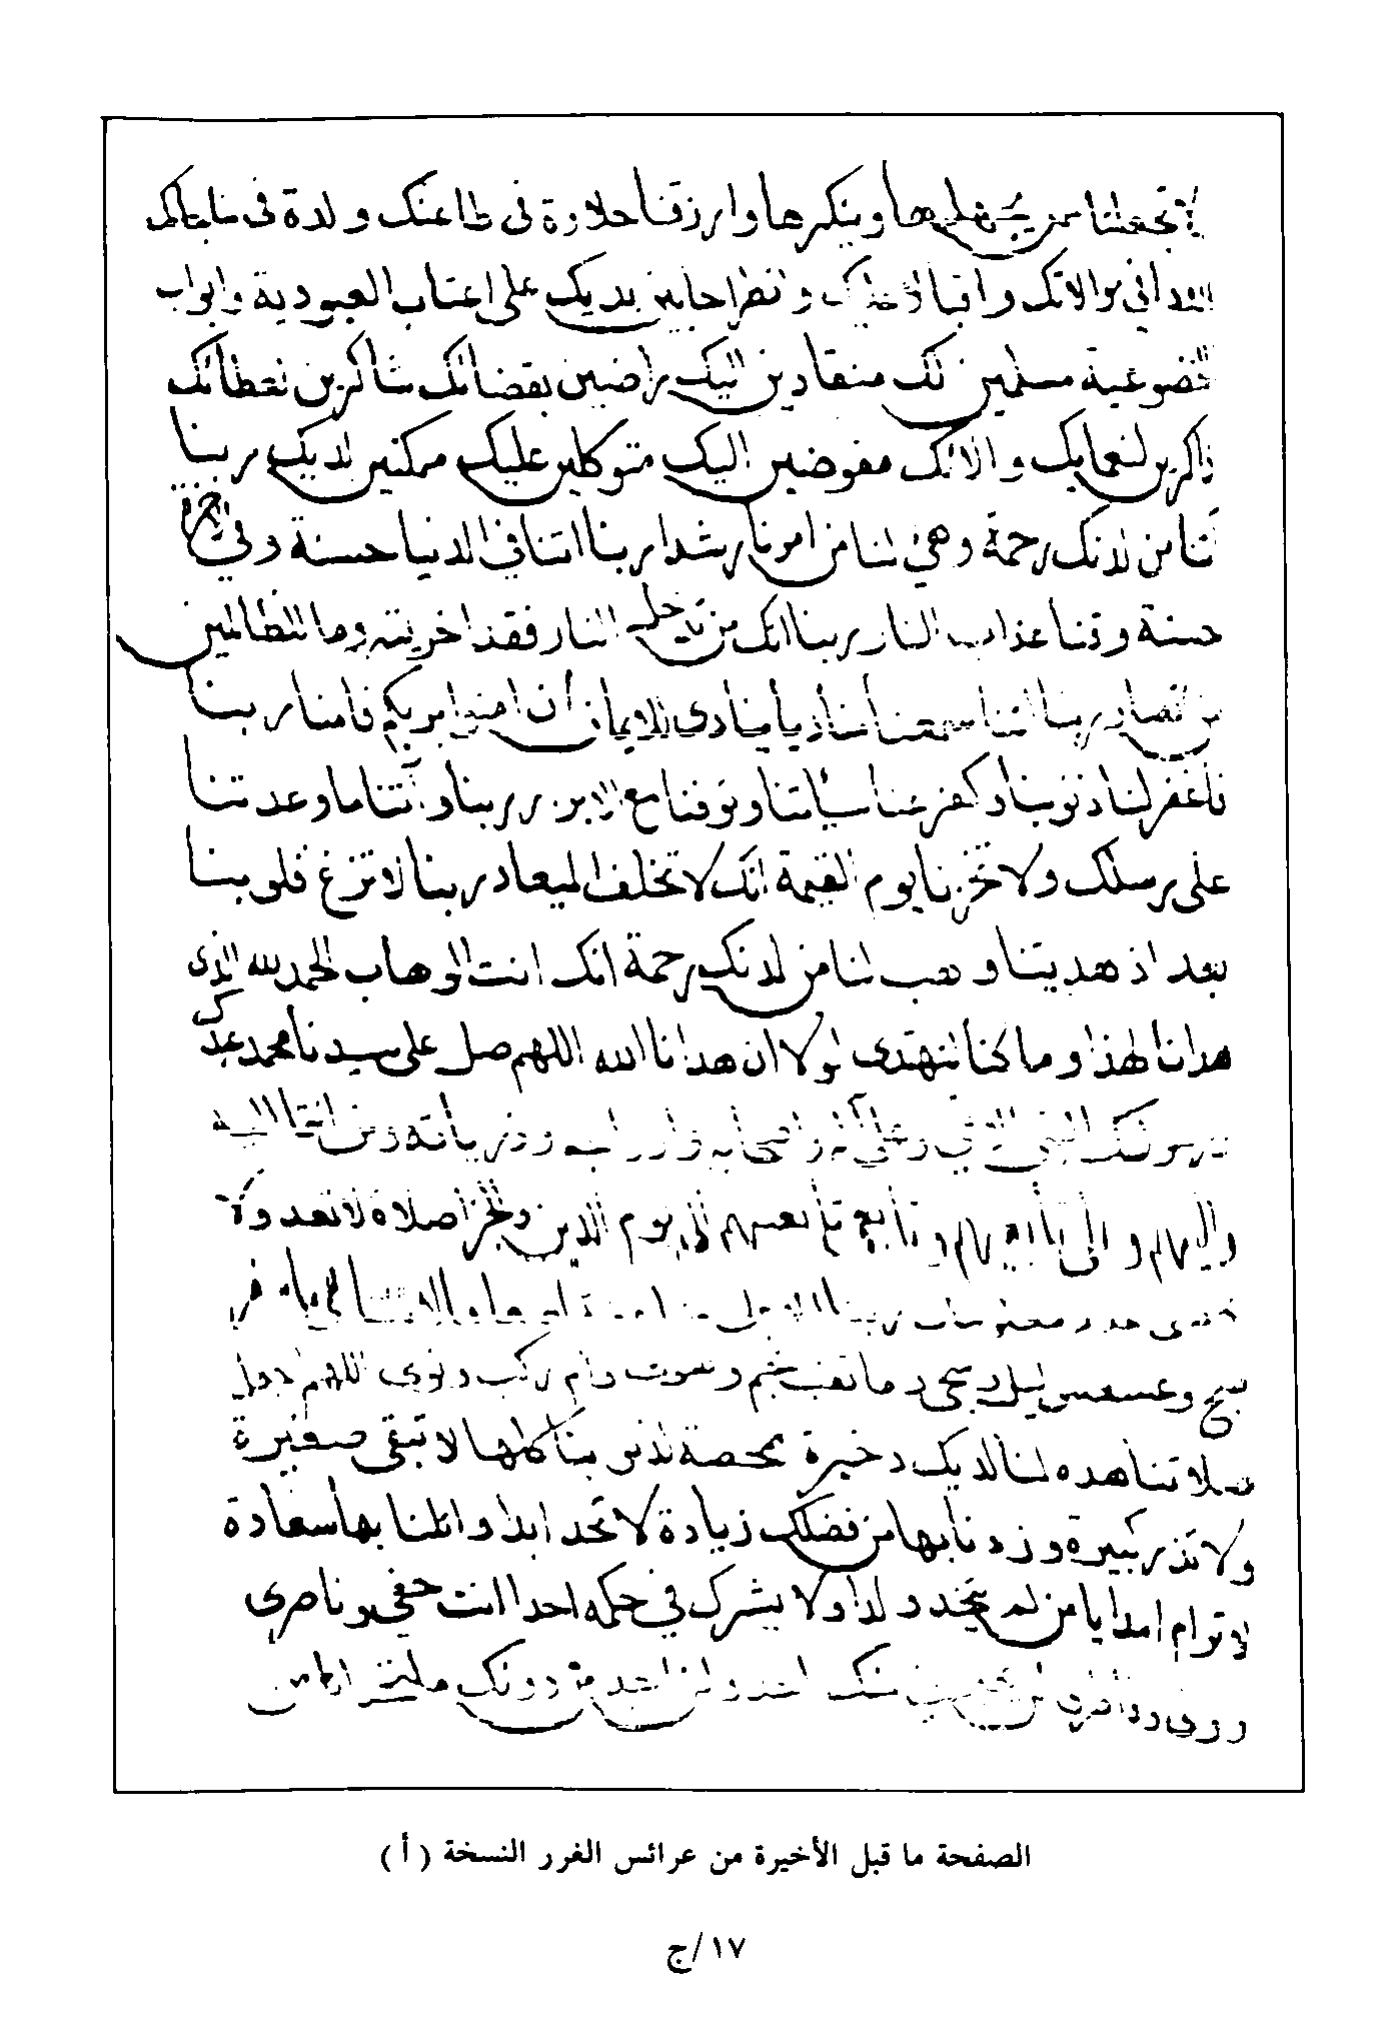 لا تجعلنا ممن يجهلها وينكرها وارزقنا حلاوة في طاعتك ولذة في مناجاتك
في موالاتك واقبالا عليك وانطراحا بين يديك على اعتاب العبودية وابواب
الخضوعية مسلمين لك منقادين اليك راضين بقضائك شاكرين لعطائك
ذاكرين لنعمايك والائك مفوضين اليك متوكلين عليك ممكنين لديك ربنا
آتنا من لدنك رحمة وهيئ لنا من امرنا رشدا ربنا اتنا في الدنيا حسنة وفي الآخرة
حسنة وقنا عذاب النار ربنا انك من تدخل النار فقد اخزيته وما للظالمين
من انصار ربنا اننا سمعنا مناديا ينادى للايمان أن امنوا بربكم فامنا ربنا
فاغفر لنا ذنوبنا وكفر عنا سيئاتنا وتوفنا مع الابرار ربنا وآتنا ما وعدتنا
على رسلك ولا تخزنا يوم القيمة انك لا تخلف الميعاد ربنا لا تزغ قلوبنا
بعد اذ هديتنا وهب لنا من لدنك رحمة انك انت الوهاب الحمد لله الذى
هدانا لهذا وما كنا لنهتدى لولا ان هدانا الله اللهم صل على سيدنا محمد عبدك
ورسولك النبي وعلى آله واصحابه وازواجه وذرياته ومن انتمى اليه
واليهم والى تابعيهم وتابع تابعيهم الى يوم الدين صلاة لا تعد ولا
وعسعس ليل وما نجم اللهم اجعل
صلاتنا هذه لنا لديك ذخيرة ممحصة لذنوبنا كلها لا تبقى صغيرة
ولا تذر كبيرة وزدنا بها من فضلك زيادة لا تحد ابدا وانلنا بها سعادة
لا ترام امدا يا من لم يتخذ ولدا ولا يشرك في حكمه احدا انت حفيى وناصرى
احد ولن اجد من دونك ملتحدا
الصفحة ما قبل الأخيرة من عرائس الغرر النسخة (أ)
١٧/ج